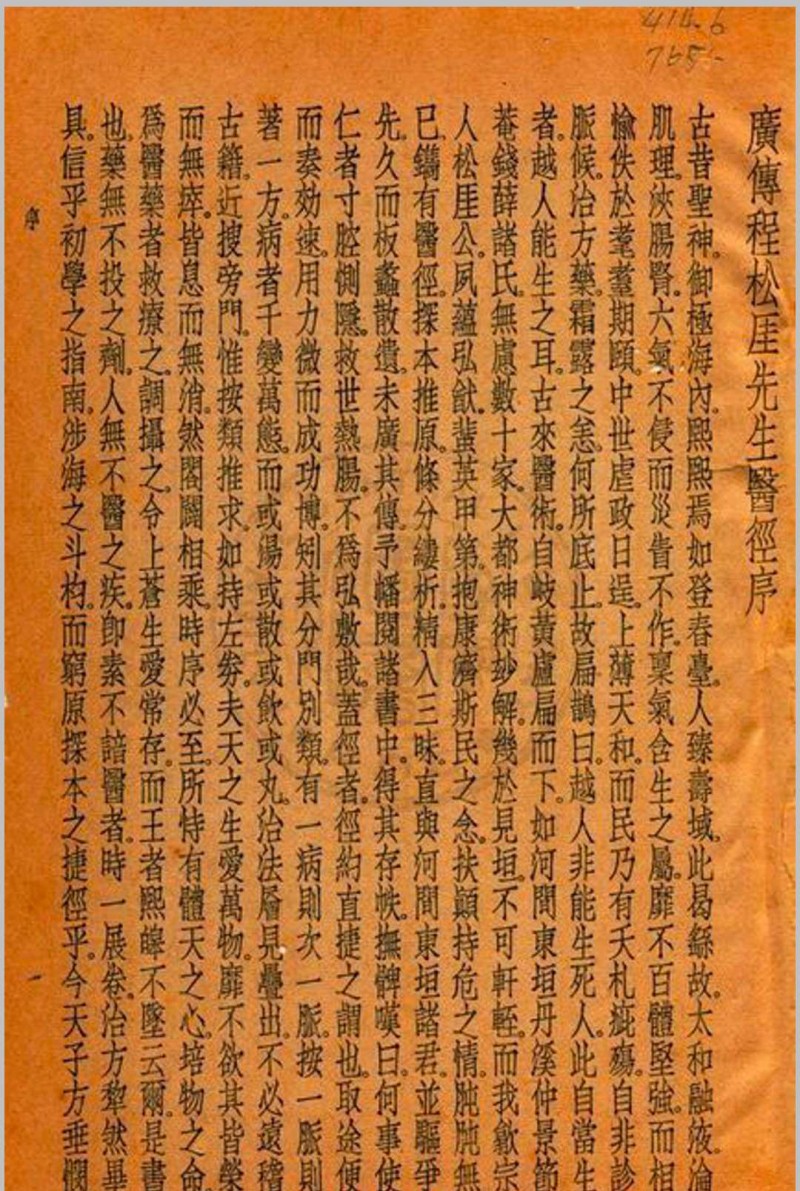 414.6
765.-
廣傳程松厓先生醫徑序
古昔聖神。御極海內。熙熙焉如登春臺。人臻壽域。此曷繇故。太和融液。淪
肌理。浹腸腎。六氣不侵而災眚不作。稟氣含生之屬。靡不百體堅強。而相
愉佚於耄耋期頤。中世虐政日逞。上薄天和。而民乃有夭札疵癘。自非診
脈候。治方藥。霜露之恙。何所底止。故扁鵲曰。越人非能生死人。此自當生
者。越人能生之耳。古來醫術。自岐黃盧扁而下。如河間東垣丹溪仲景節
菴錢薛諸氏。無慮數十家。大都神術妙解。幾於見垣。不可軒輊。而我歙宗
人松厓公。夙蘊弘猷。蜚英甲第。抱康濟斯民之念。扶顛持危之情。肫肫無
已。鐫有醫徑。探本推原。條分縷析。精入三昧。直與河間東垣諸君。並驅爭
先。久而板蠡散遺。未廣其傳。予幡閱諸書中。得其存帙。撫髀嘆曰。何事使
仁者寸腔惻隱。救世熱腸。不為弘敷哉。蓋徑者。徑約直捷之謂也。取途便
而奏効速。用力微而成功博。矧其分門別類。有一病則次一脈。按一脈則
著一方。病者千變萬態。而或湯或散或飲或丸。治法層見疊出。不必遠稽
古籍。近搜旁門。惟按類推求。如持左券。夫天之生愛萬物。靡不欲其皆榮
而無瘁。皆息而無消。然闔闢相乘。時序必至。所恃有體天之心。培物之命。
為醫藥者救療之。調攝之。令上蒼生愛常存。而王者熙皞不墜云爾。是書
也。藥無不投之劑。人無不醫之疾。卽素不諳醫者。時一展卷。治方犂然畢
具。信乎初學之指南。涉海之斗杓。而窮原探本之捷徑乎。今天子方垂憫
序
一